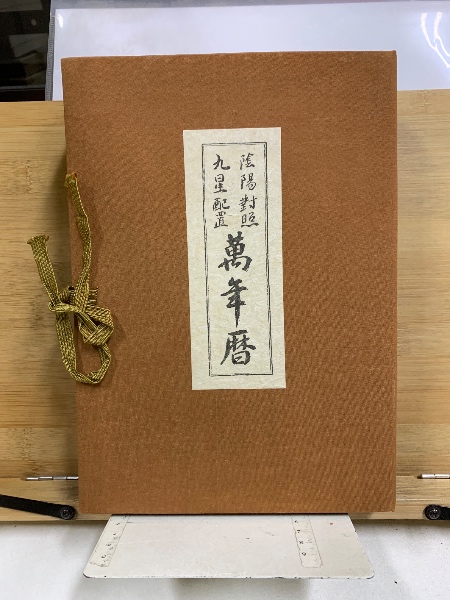 陰陽對照
九星配置
萬年暦